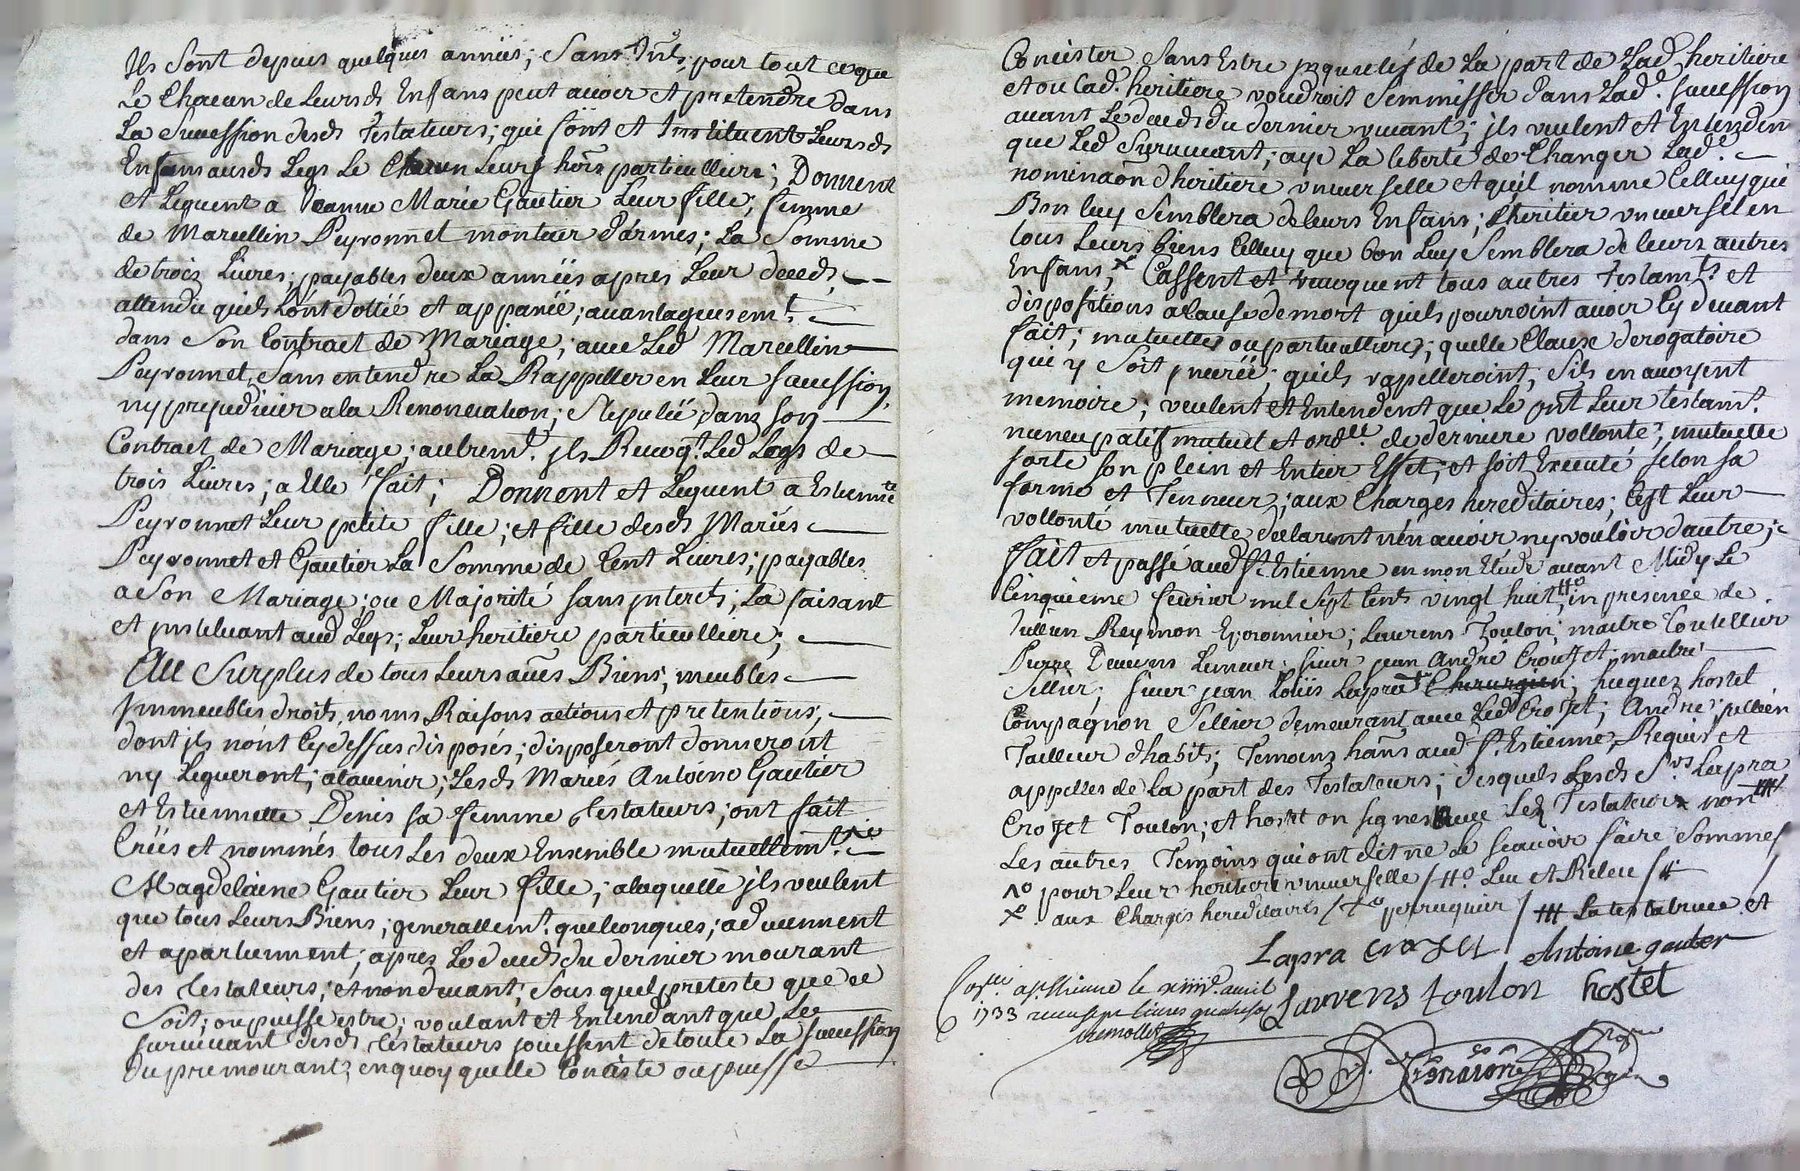 Ils sont depuis quelques annéés; sans Inst; pour tout ceque
Le Chacun de Leursds Enfans peut avoir et pretendre dans
La Succession desds Testateurs; qui font et Instituent Leursds
Enfans ausds Legs Le Chacun Leurs hers particulliers; Donnent
et Leguent a Jeanne Marie Gautier Leur fille; femme
de Marcellin Peyronnet monteur d'armes; La Somme
de trois Livres; payables deux annéés apres Leur deceds,
attendu quils L'ont dottéé et appanéé; avantageusemt.
dans Son Contract de Mariage; avec Led Marcellin
Peyronnet, Sans entendre La Rappeller en Leur succession,
ny prejudicier a la Renonciation; Stipuléé dans son
Contract de Mariage; autremt. jls Revoqt. Led Legs de
trois Livres; a Elle fait; Donnent et Leguent a Estiennte
Peyronnet Leur petite fille; et fille desds Mariés
Peyronnet et Gautier La Somme de Cent Livres; payables
a Son Mariage; ou Majorité sans jnterets; La faisant
et jnstituant aud Legs; Leur heritiere particulliere;
Au Surplus de tous Leurs aues Biens; meubles
jmmeubles droits, noms Raisons actions et pretentions;
dont jls nont Cydessus disposés; disposeront donneront
ny Legueront; alavenir; Lesds Mariés Antoine Gautier
et Estiennette Denis sa femme Testateurs; ont fait
Créés et nommés tous Les deux Ensemble mutuellemt.
Magdelaine Gautier Leur fille; alaquelle jls veulent
que tous Leurs Biens; generallemt. quelconques; adviennent
et apartiennent; apres Le deceds du dernier mourant
des Testateurs; et non devant; Sous quel preteste que ce
Soit; ou puisse estre; voulant et Entendant que Le
survivant desds Testateurs jouissent de toute La succession
du premourant; en quoy quelle Consiste ou puisse
Consister Sans Estre jnquietés de La part de Lad. heritiere
et ou Lad. heritiere voudroit S'emmisser dans Lad. succession
avant Le deceds du dernier vivant; jls veulent et Entenden
que Led Survivant; aye La liberté de Changer Lad.
nominaon d'heritiere universelle et quil nomme Celluy qui
Bon luy Semblera de leurs Enfans; d'heritier universel en
tous Leurs biens Celluy que bon Luy Semblera de leurs autres
Enfans; x Cassent et revoquent tous autres Testamts. et
dispositions a Cause de mort quils pourroint avoir Cy devant
fait; mutuelles ou particulliers; quelle Clause derogatoire
qui y soit jnceréé; quils rapelleroint, Sils en avoyent
memoire; veulent et Entendent que Le pnt Leur testamt.
nuncupatif mutuel et ordre. de derniere vollonté; mutuelle
sorte son plein et Entier Effet; et soit Executé selon sa
forme et Tenneur; aux Charges hereditaires; C'est Leur
vollonté mutuelle declarent n'en avoir ny vouloir dautre;
fait et passé aud St. Estienne en mon Etude avant Midy Le
Cinquieme fevrier mil Sept Cents vingt huit; in presence de
Jullien Reymon Eperonnier; Laurens Toulon; maitre Coutellier
Pierre Limeur; sieur jean André Crozet maitre
Sellier; sieur jean Louis Lapra Chirurgien; hugues hostel
Compagnon Sellier demeurant avec Led Crozet; André jullien
Tailleur d'habits; Temoins hans aud St. Estienne, Requis et
appelles de La part des Testateurs; desquels Lesds Srs Lapra
Crozet Toulon; et hostel on signes avec Led Testateur non
Les autres Temoins qui ont dit ne Le scavoir faire Sommes
^o pour Leur heritiere universelle / #o Leu et Releu / #
x aux Charges hereditaires / perruquier / # La testatrice et
Lapra Crozet Antoine gautier
Collé a St Etienne le xiiiie. avril Laurens toulon hostel
1733 receu sept livres quatre sols